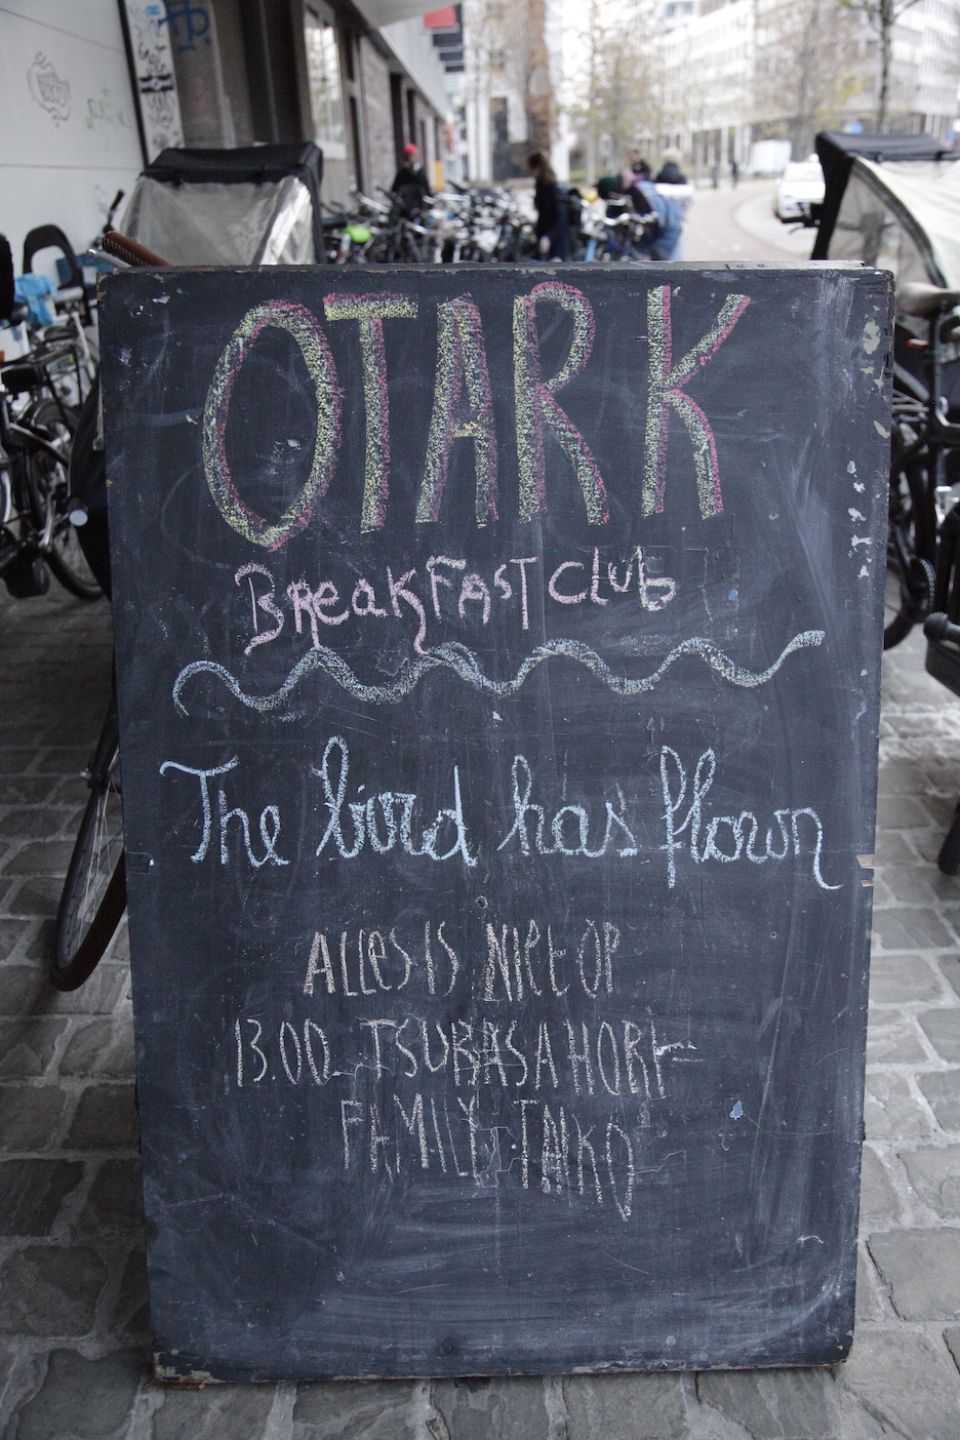 OTARK
BREAKFAST CLUB
The bird has flown
ALLES IS NIET OP
13.00 TSUBASA HORI-
FAMILY TAIKO